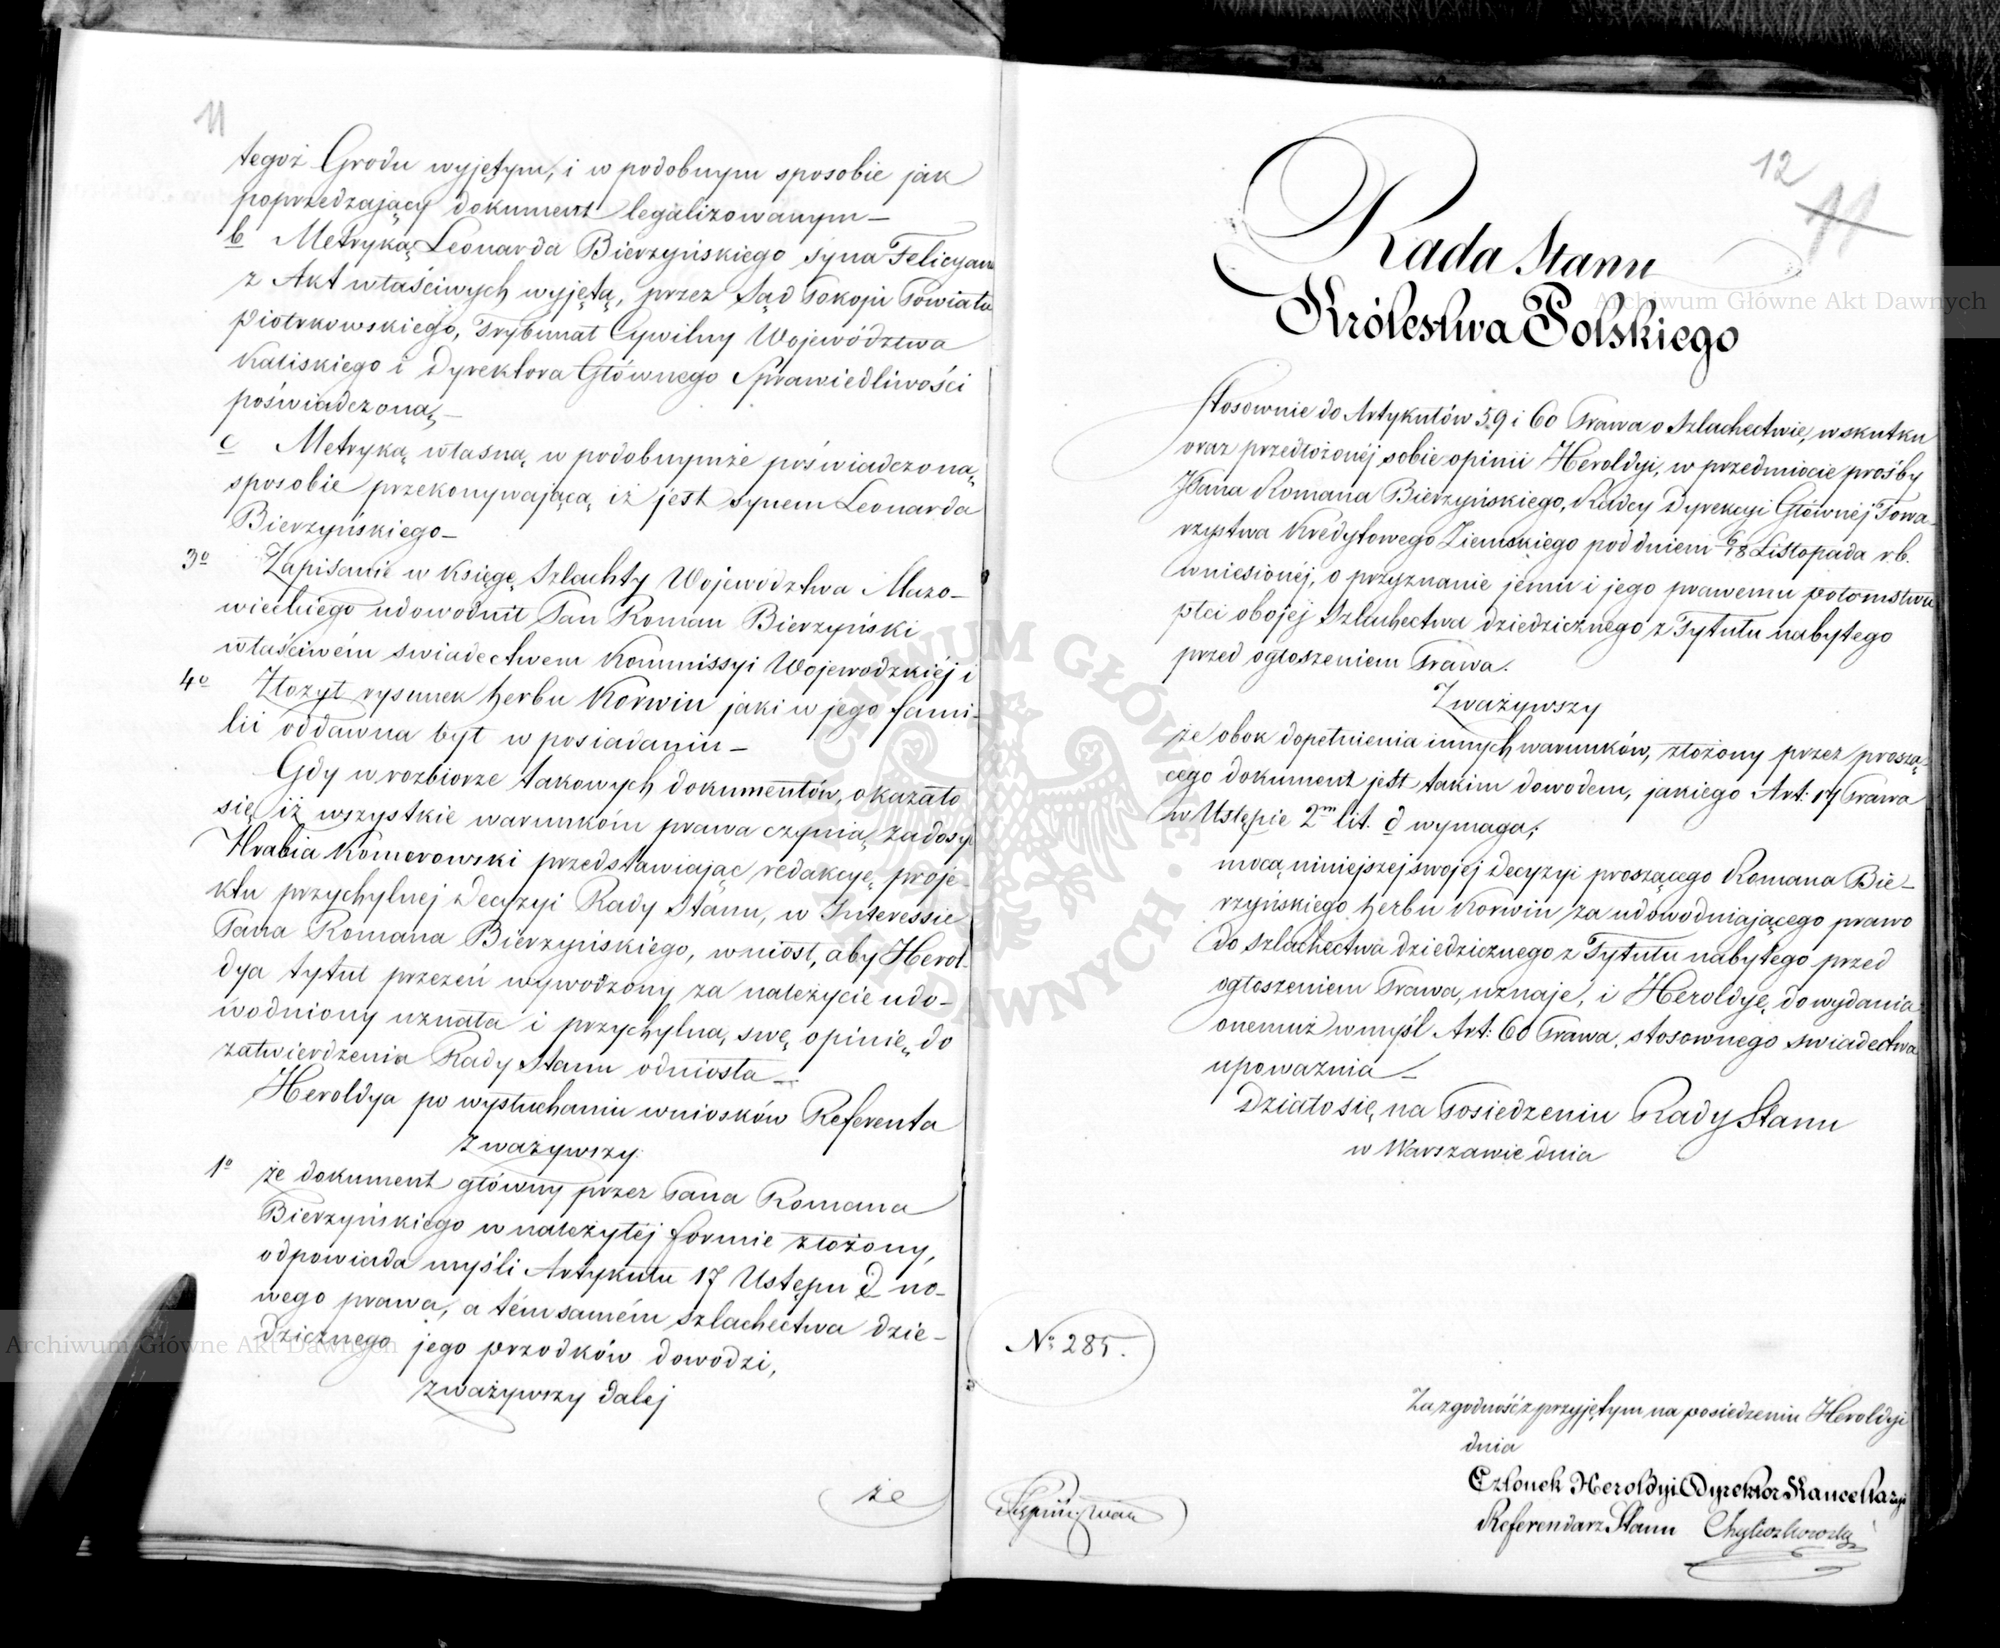 11
tegoż Grodu wyjętym, i w podobnym sposobie jak
poprzedzający dokument legalizowanym —
b Metryką Leonarda Bierzyńskiego syna Felicyana
z Akt właściwych wyjętą, przez Sąd Pokoju Powiatu
Piotrkowskiego, Trybunał Cywilny Województwa
Kaliskiego i Dyrektora Głównego Sprawiedliwości
poświadczoną —
c Metryką własną w podobnymże poświadczoną
sposobie przekonywającą iż jest synem Leonarda
Bierzyńskiego —
3o Zapisanie w Księgę Szlachty Województwa Mazo-
wieckiego udowodnił Pan Roman Bierzyński
właściwém świadectwem Kommissyi Wojewodzkiéj i
4o Złożył rysunek herbu Korwin jaki w jego fami-
lii oddawna był w posiadaniu —
Gdy w rozbiorze takowych dokumentów, okazało
się iż wszystkie warunkóm prawa czynią zadosyć
Hrabia Komorowski przedstawiając redakcyę proje-
ktu przychylnej Decyzyi Rady Stanu, w Interessie
Pana Romana Bierzyńskiego, wniósł, aby Herol-
dya tytuł przezeń wywodzony za należycie udo-
wodniony uznała i przychylną swę opinię do
zatwierdzenia Rady Stanu odniosła —
Heroldya po wysłuchaniu wniosków Referenta
zważywszy
1o że dokument główny przez Pana Romana
Bierzyńskiego w należytéj formie złożony,
odpowiada myśli Artykułu 17 Ustępu d no-
wego prawa, a témsamém szlachectwa dzie-
dzicznego jego przodków dowodzi,
zważywszy daléj
że
12
11
Rada Stanu
Królestwa Polskiego
Stosownie do Artykułów 59 i 60 Prawa o Szlachectwie, wskutku
oraz przedłożonéj sobie opinii Heroldyi, w przedmiocie prośby
Pana Romana Bierzyńskiego, Radcy Dyrekcyi Głównéj Towa-
rzystwa Kredytowego Ziemskiego pod dniem 6/18 Listopada r.b.
wniesionéj, o przyznanie jemu i jego prawemu potomstwu
płci obojej Szlachectwa dziedzicznego z Tytułu nabytego
przed ogłoszeniem Prawa.
Zważywszy
że obok dopełnienia innych warunków, złożony przez proszą-
cego dokument jest takim dowodem, jakiego Art: 17 Prawa
w Ustępie 2m lit. d wymaga;
mocą niniejszej swojej Decyzyi proszącego Romana Bie-
rzyńskiego herbu Korwin za udowodniającego prawo
do Szlachectwa dziedzicznego z Tytułu nabytego przed
ogłoszeniem Prawa, uznaje, i Heroldyę do wydania
onemuż w myśl Art: 60 Prawa, stosownego świadectwa
upoważnia —
Działo się na Posiedzeniu Rady Stanu
w Warszawie dnia
No 285.
Za zgodność z przyjętym na posiedzeniu Heroldyi
dnia
Członek Heroldyi Dyrektor Kancellaryi
Referendarz Stanu
Archiwum Główne Akt Dawnych
Archiwum Główne Akt Dawnych
ARCHIWUM GŁÓWNE AKT DAWNYCH